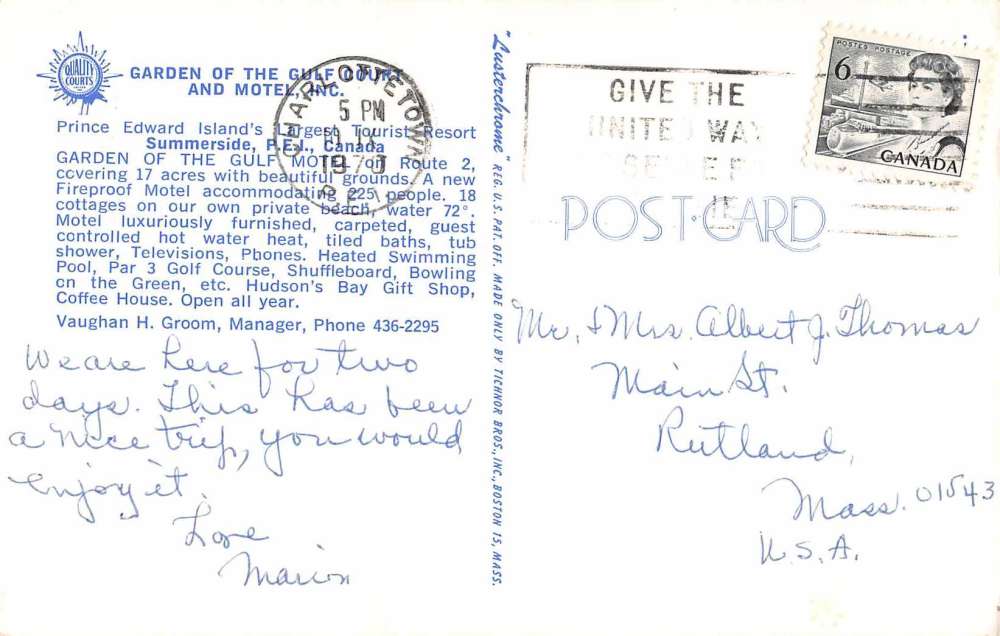 QUALITY
COURTS
GARDEN OF THE GULF COURT
AND MOTEL, INC.
Prince Edward Island's Largest Tourist Resort
Summerside, P.E.I., Canada
GARDEN OF THE GULF MOTEL on Route 2,
covering 17 acres with beautiful grounds. A new
Fireproof Motel accommodating 225 people. 18
cottages on our own private beach, water 72°.
Motel luxuriously furnished, carpeted, guest
controlled hot water heat, tiled baths, tub
shower, Televisions, Phones. Heated Swimming
Pool, Par 3 Golf Course, Shuffleboard, Bowling
on the Green, etc. Hudson's Bay Gift Shop,
Coffee House. Open all year.
Vaughan H. Groom, Manager, Phone 436-2295
We are here for two
days. This has been
a nice trip, you would
enjoy it.
Love
Marion
CHARLOTTETOWN
5 PM
1970
P.E.I.
"Lusterchrome" REG. U.S. PAT. OFF. MADE ONLY BY TICHNOR BROS., INC., BOSTON 15, MASS.
GIVE THE
UNITED WAY
POSTES POSTAGE
6
CANADA
POST CARD
Mr. & Mrs. Albert J. Thomas
Main St.
Rutland,
Mass. 01543
U.S.A.